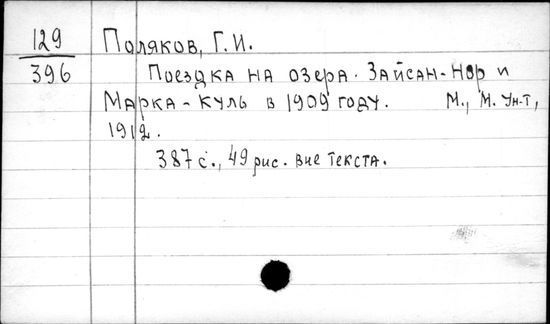 129
396
Поляков, Г.И.
Поездка на озера. Зайсан-Нор и
Марка-Куль в 1909 году. М., М. Ун-т,
1912.
387 с., 49 рис. вне текста.